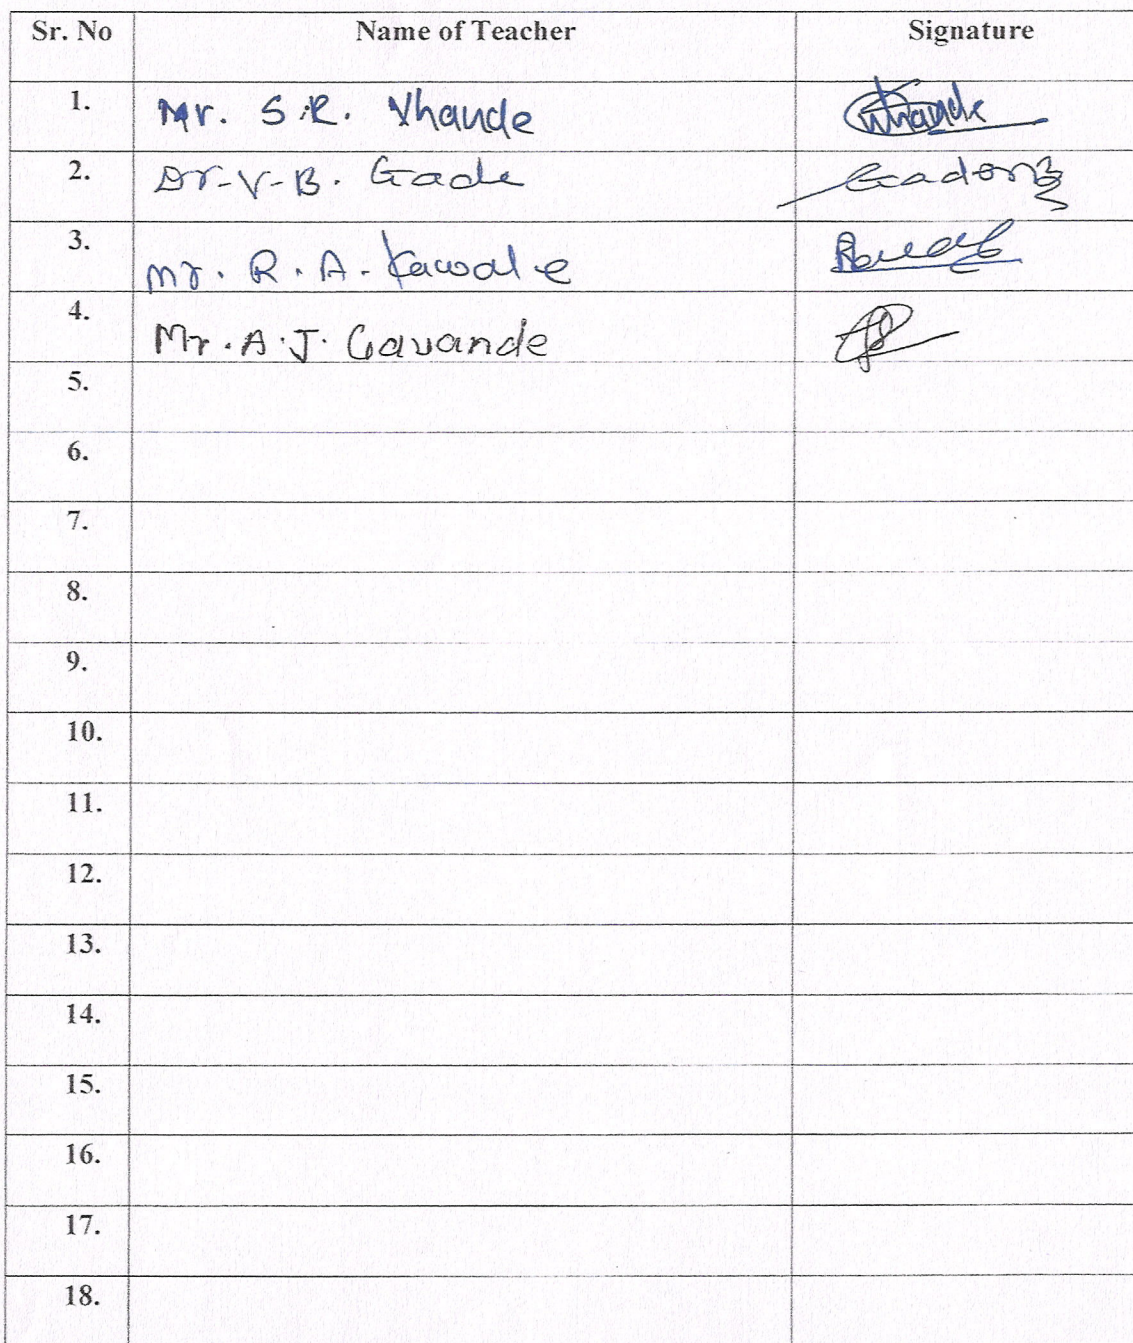 Sr. No Name of Teacher Signature
1. Mr. S.R. Vhande
2. Dr. V. B. Gade
3. Mr. R. A. Kawale
4. Mr. A. J. Gavande
5.
6.
7.
8.
9.
10.
11.
12.
13.
14.
15.
16.
17.
18.